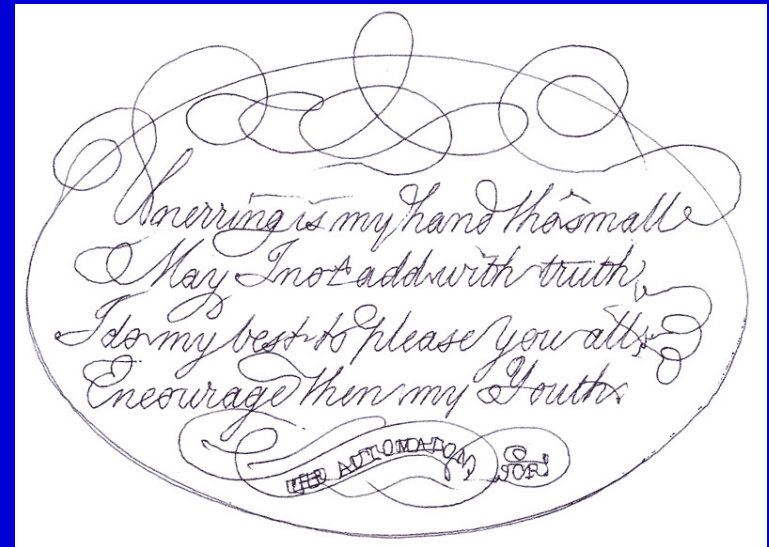 Unerring is my hand tho' small
May I not add with truth
I do my best to please you all
Encourage then my Youth
THE AUTOMATON